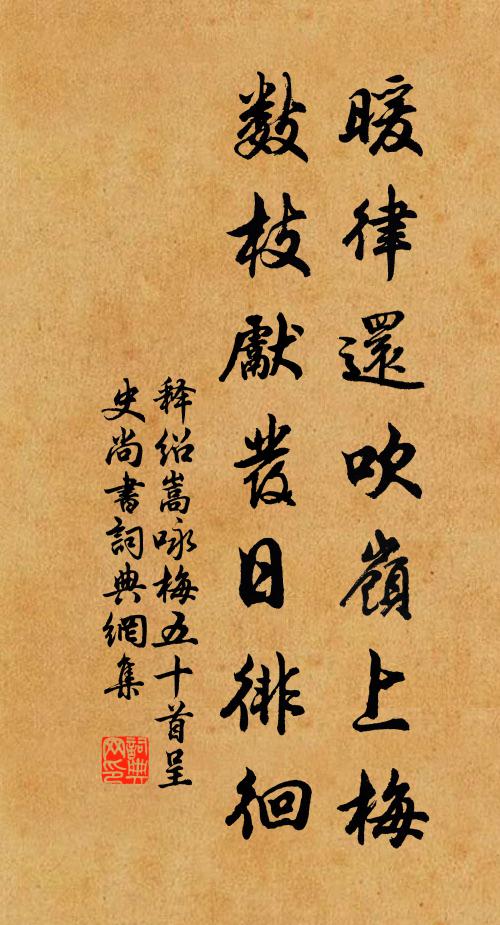 暖律還吹嶺上梅
數枝獻發日徘徊
释绍嵩咏梅五十首呈
史尚書詞典網集
詞典
网印